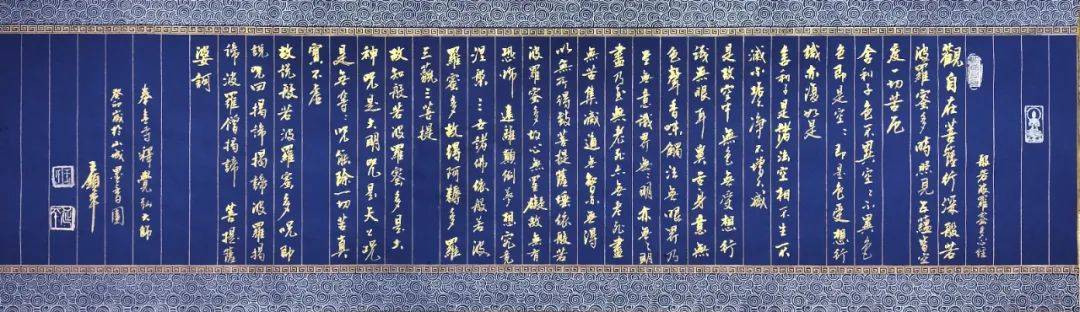 般若波羅蜜多心經
觀自在菩薩行深般若
波羅蜜多時照見五蘊皆空
度一切苦厄
舍利子色不異空々不異色
色即是空々即是色受想行
識亦復如是
舍利子是諸法空相不生不
滅不垢不淨不增不減
是故空中無色無受想行
識無眼耳鼻舌身意無
色聲香味觸法無眼界乃
至無意識界無々明亦無々明
盡乃至無老死亦無老死盡
無苦集滅道無智亦無得
以無所得故菩提薩埵依般若
波羅蜜多故心無罣礙故無有
恐怖遠離顛倒夢想究竟
涅槃三世諸佛依般若波
羅蜜多故得阿耨多羅
三藐三菩提
故知般若波羅蜜多是大
神咒是大明咒是無上咒
是無等々咒能除一切苦真
實不虛
故說般若波羅蜜多咒即
說咒曰揭諦揭諦波羅揭
諦波羅僧揭諦菩提薩
婆訶
奉喜寺釋覺弘大師
癸卯歲於山城墨香園